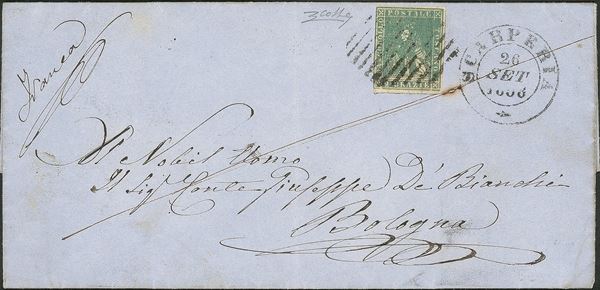 Franca
FRANCOBOLLO
POSTALE
TOSCANO
CRAZIE
SCARPERIA
26
SET
Al Nobil Uomo
Il Sigr Conte Giuseppe De' Bianchi
Bologna